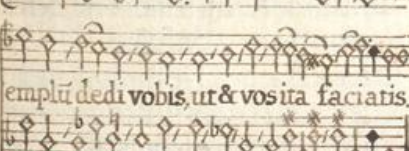 emplũ dedi vobis, ut & vos ita faciatis